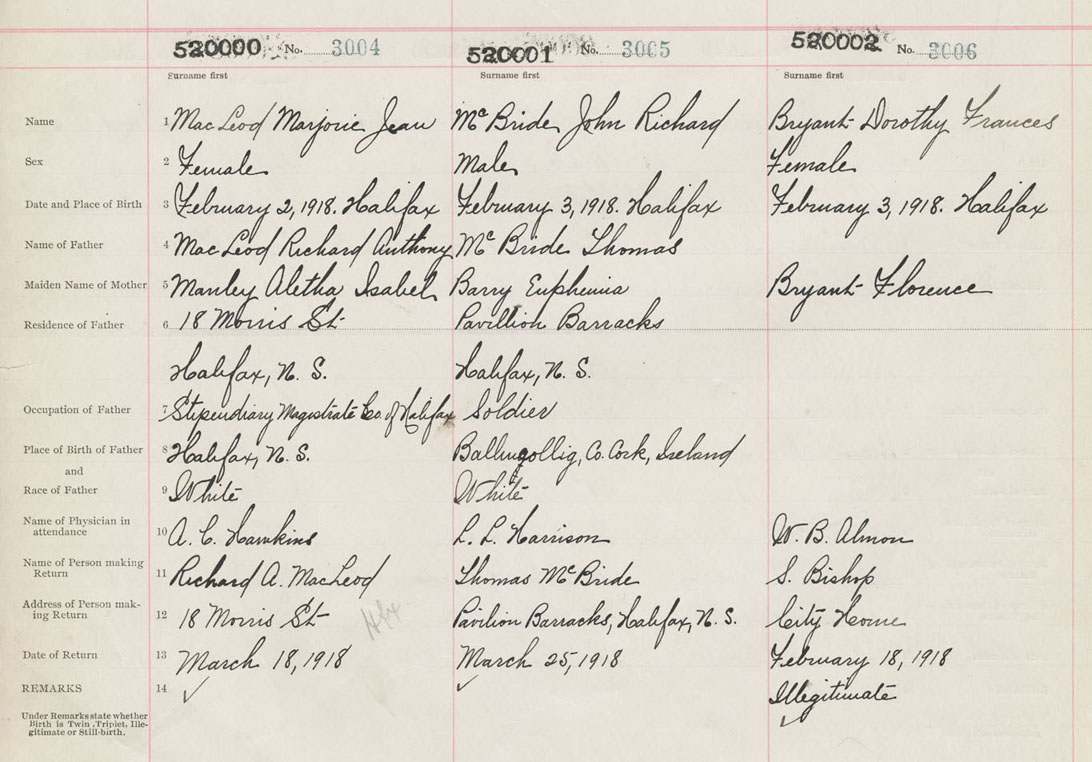 520000 No. 3004 520001 No. 3005 520002 No. 3006
Surname first Surname first Surname first
Name 1 MacLeod Marjorie Jean McBride John Richard Bryant Dorothy Frances
Sex 2 Female Male Female
Date and Place of Birth 3 February 2, 1918. Halifax February 3, 1918. Halifax February 3, 1918. Halifax
Name of Father 4 MacLeod Richard Anthony McBride Thomas
Maiden Name of Mother 5 Manley Aletha Isabel Barry Euphemia Bryant Florence
Residence of Father 6 18 Morris St Pavillion Barracks
Halifax, N. S. Halifax, N. S.
Occupation of Father 7 Stipendiary Magistrate Co. of Halifax Soldier
Place of Birth of Father 8 Halifax, N. S. Ballingollig, Co. Cork, Ireland
and
Race of Father 9 White White
Name of Physician in
attendance 10 A. C. Hawkins L. L. Harrison W. B. Almon
Name of Person making
Return 11 Richard A. MacLeod Thomas McBride S. Bishop
Address of Person mak-
ing Return 12 18 Morris St Pavilion Barracks, Halifax, N. S. City Home
Date of Return 13 March 18, 1918 March 25, 1918 February 18, 1918
REMARKS 14 ✓ ✓ Illegitimate ✓
Under Remarks state whether
Birth is Twin, Triplet, Ille-
gitimate or Still-birth.